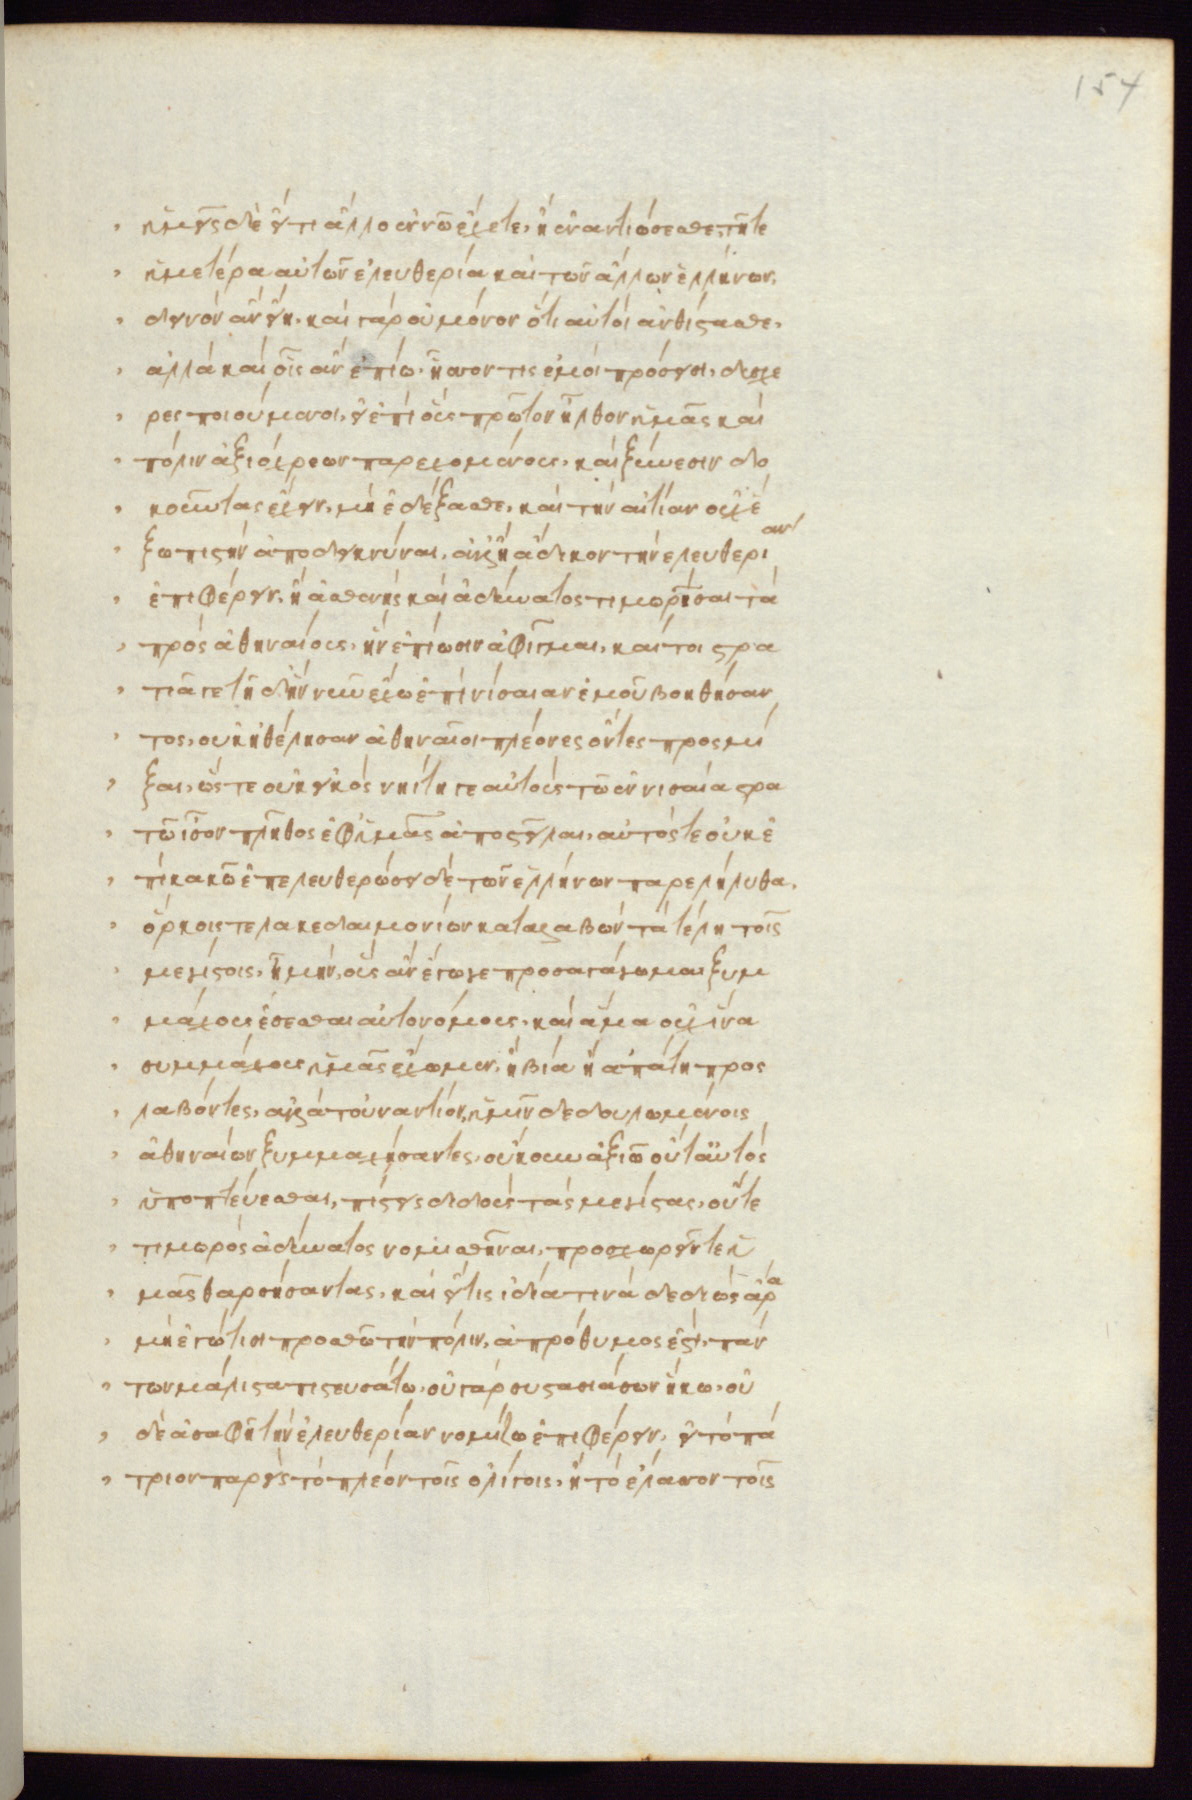 154
ὑμεῖς δὲ εἴ τι ἄλλο ἐν νῶ ἔχετε, ἢ ἐναντιώσεσθε τῆ τε
ὑμετέρα αὐτῶν ἐλευθερία καὶ τῶν ἄλλων ἑλλήνων,
δεινὸν ἂν εἴη. καὶ γὰρ οὐ μόνον ὅτι αὐτοὶ ἀνθίστασθε,
ἀλλὰ καὶ οἷς ἂν ἐπίω. ἧσσον τις ἐμοὶ πρόσεισι, δυσχε
ρὲς ποιούμενοι, εἰ ἐπὶ οὓς πρῶτον ἦλθον ὑμᾶς καὶ
πόλιν ἀξιόχρεων παρεχομένους, καὶ ξύνεσιν δο
κοῦντας ἔχειν, μὴ ἐδέξασθε, καὶ τὴν αἰτίαν οὐχ ἕ
ξω πιστὴν ἀποδεικνύναι, ἀλλ' ἢ ἄδικον τὴν ἐλευθερίαν
ἐπιφέρειν, ἢ ἀσθενὴς καὶ ἀδύνατος τιμωρῆσαι τὰ
πρὸς ἀθηναίους, ἢν ἐπίωσιν ἀφῖγμαι, καίτοι στρα
τιᾶ γε τῆ δ' ἣν νῦν ἔχω ἐπὶ νίσαιαν ἐμοῦ βοηθήσαν
τος, οὐκ ἠθέλησαν ἀθηναῖοι πλέονες ὄντες προσμί
ξαι, ὥστε οὐκ εἰκὸς νηίτη γε αὐτοὺς τῶ ἐν νισαία στρα
τῶ ἴσον πλῆθος ἐφ' ὑμᾶς ἀποστεῖλαι, αὐτός τε οὐκ ἐ
πὶ κακῶ ἐπ' ἐλευθερώσει δὲ τῶν ἑλλήνων παρελήλυθα,
ὅρκοις τε λακεδαιμονίων καταλαβὼν τὰ τέλη τοῖς
μεγίστοις, ἦ μὴν, οὓς ἂν ἔγωγε προσαγάγωμαι ξυμ
μάχους ἔσεσθαι αὐτονόμους, καὶ ἅμα οὐχ ἵνα
συμμάχους ὑμᾶς ἔχωμεν, ἢ βία ἢ ἀπάτη προς
λαβόντες, ἀλλὰ τοὐναντίον, ὑμῖν δεδουλωμένοις
ἀθηναίων ξυμμαχήσαντες, οὔκουν ἀξιῶ οὔτ' αὐτὸς
ὑποπτεύεσθαι, πίστεις διδοὺς τὰς μεγίστας, οὔτε
τιμωρὸς ἀδύνατος νομισθῆναι, προσχωρεῖν τε ὑ
μᾶς θαρσήσαντας, καὶ εἴ τις ἰδία τινὰ δεδιὼς ἄρα
μὴ ἐγώ τισι προσθῶ τὴν πόλιν, ἀπρόθυμος ἐστι, πάν
των μάλιστα πιστευσάτω, οὐ γὰρ συστασιάσων ἥκω, οὐ
δὲ ἀσαφῆ τὴν ἐλευθερίαν νομίζω ἐπιφέρειν, εἰ τὸ πά
τριον παρεὶς τὸ πλέον τοῖς ὀλίγοις, ἢ τὸ ἔλασσον τοῖς